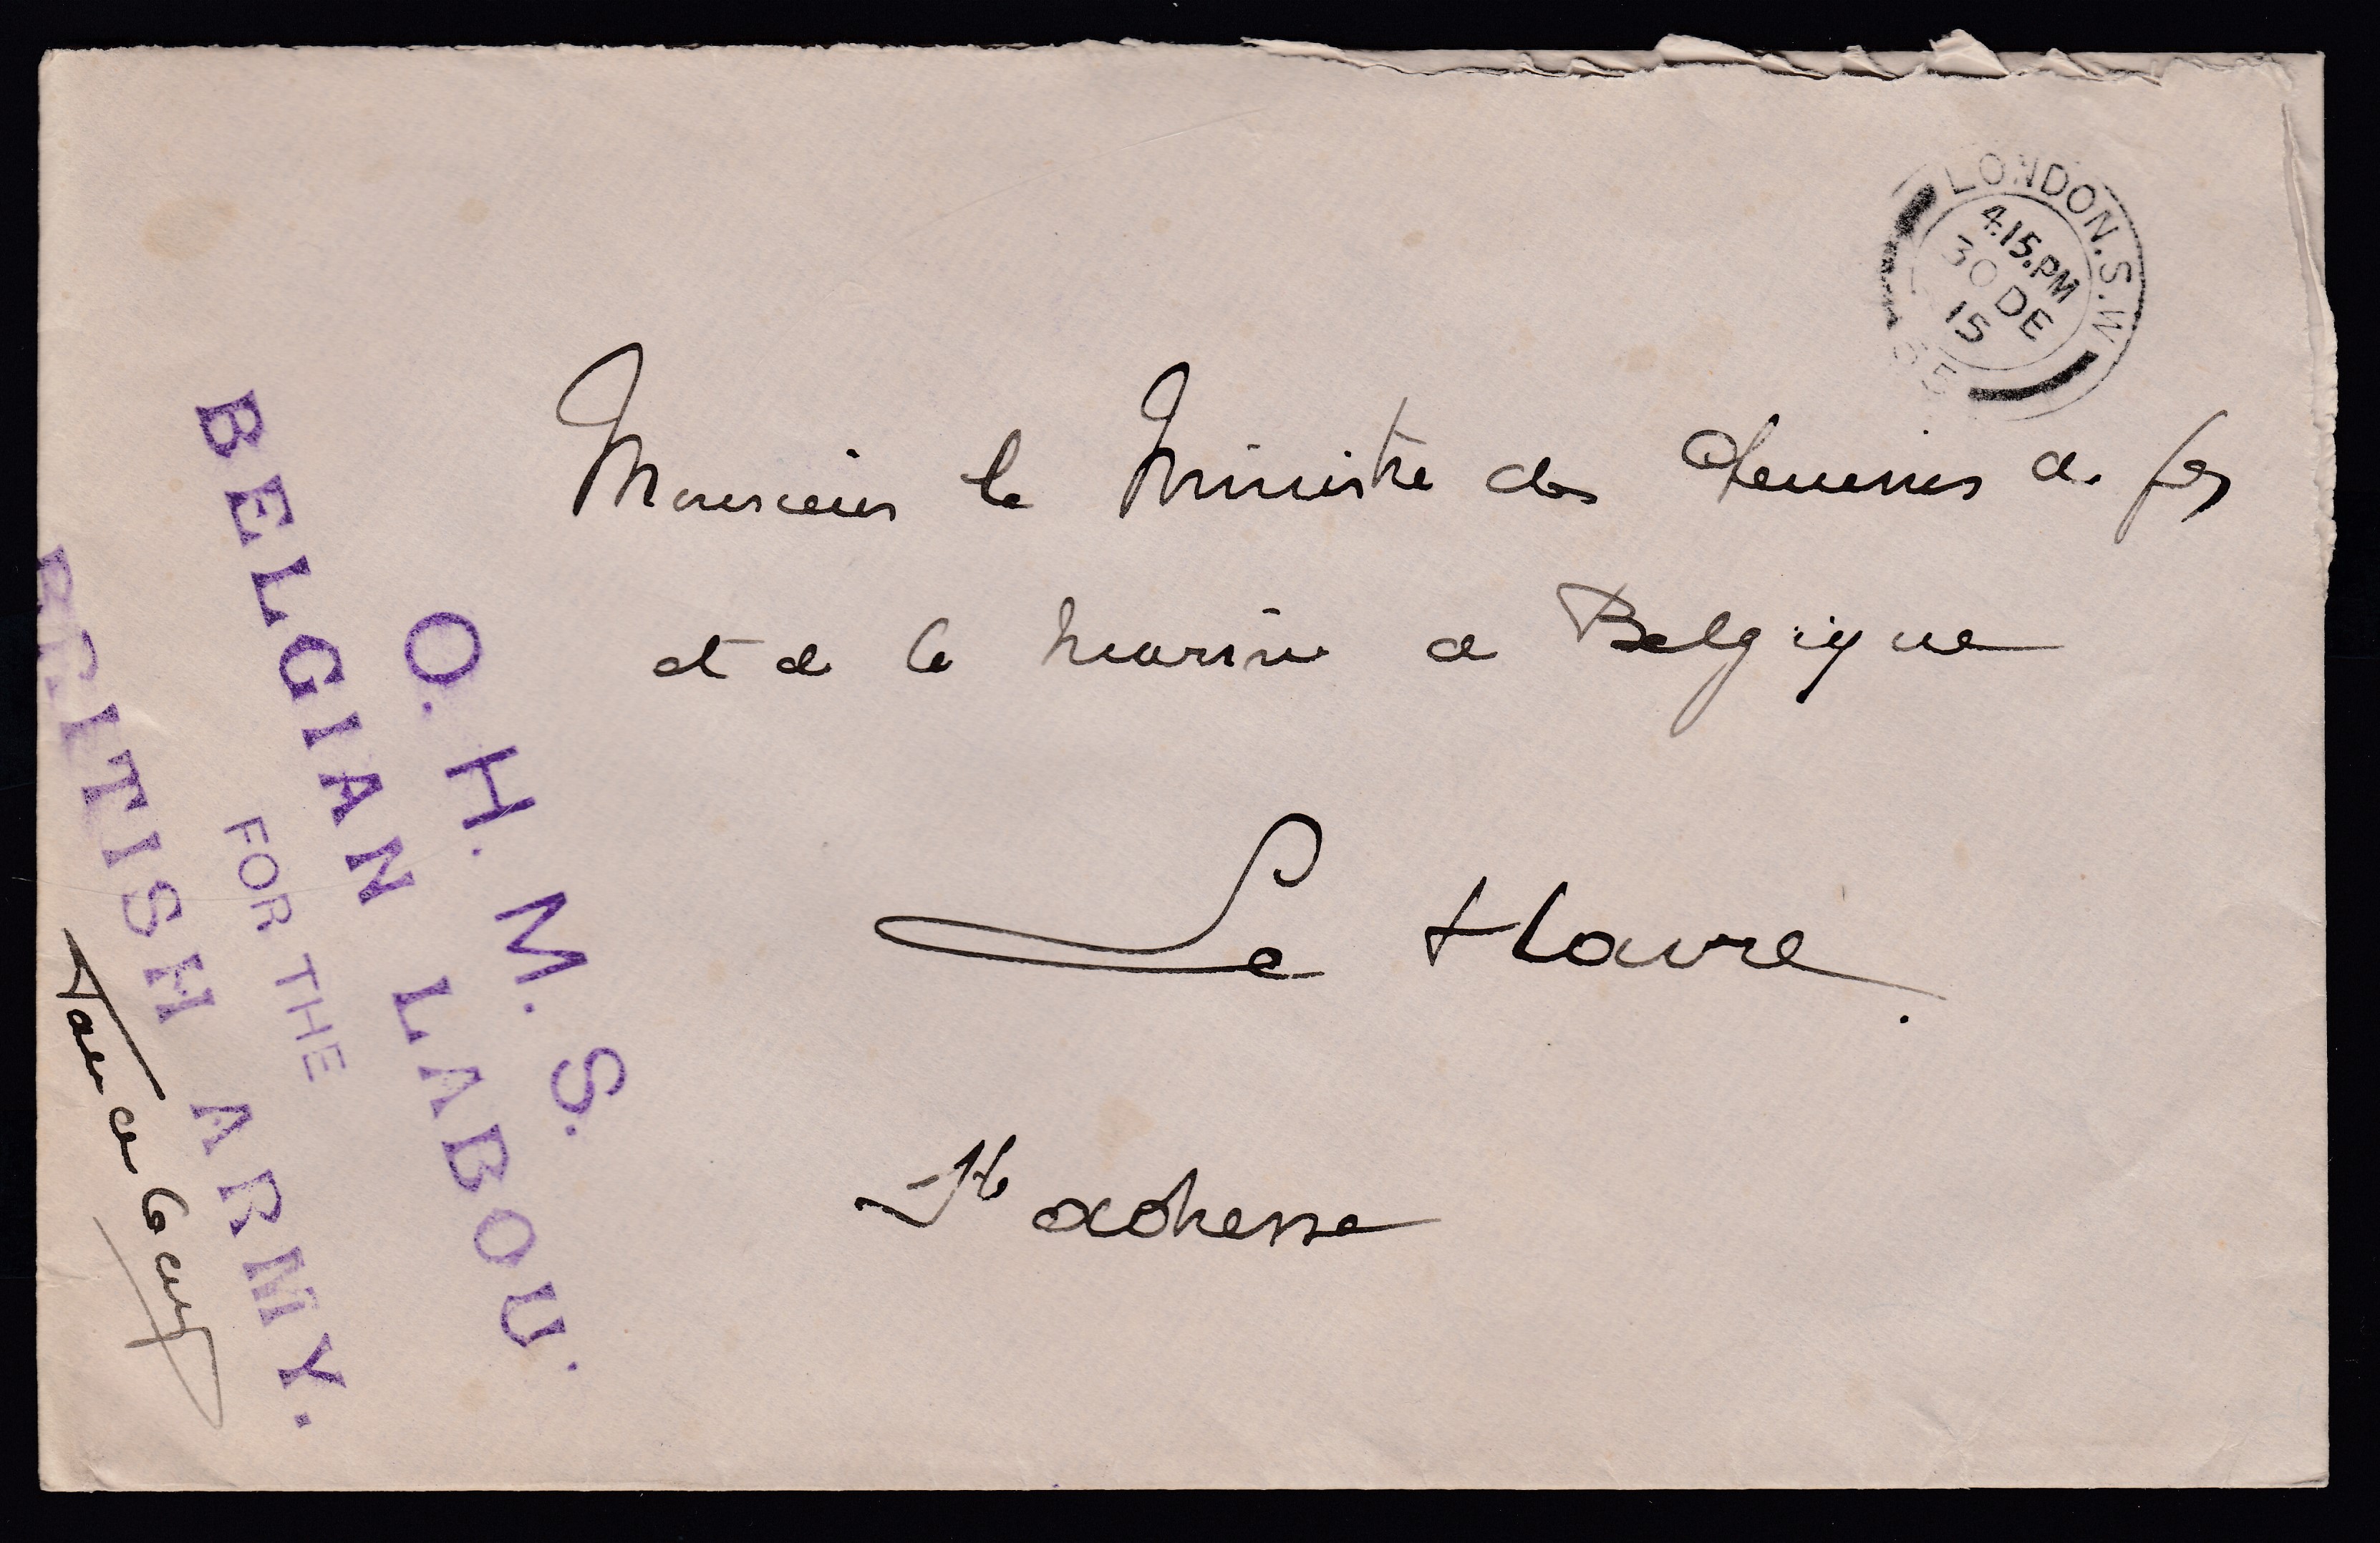 LONDON.S.W
4.15.PM
30 DE
15
Monsieur le Ministre des Chemins de fer
et de la marine de Belgique
Le Havre.
Ste adresse
O. H. M. S.
BELGIAN LABOU.
FOR THE
BRITISH ARMY.